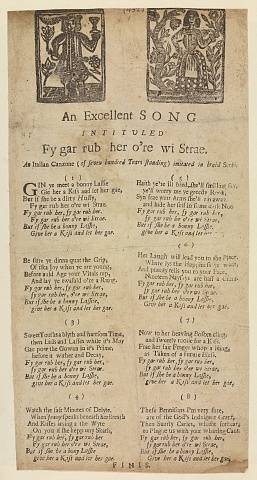 An Excellent SONG
INTITULED
Fy gar rub her o're wi Strae.
An Italian Canzone (of seven hundred Years standing) imitated in braid Scots.
(1)
GIN ye meet a bonny Lasse
Gie her a Kiss and let her gae,
But if she be a dirty Hussy,
Fy gar rub her o're wi Strae.
Fy gar rub her, fy gar rub her,
Fy gar rub her o're wi Strae:
But if she be a bonny Lasse,
Give her a Kiss and let her gae.
(2)
Be sure ye dinna quat the Grip,
Of ilka Joy when ye are young,
Before auld Age your Vitals nip,
And lay ye twafald o're a Rung.
Fy gar rub her, fy gar rub her,
Fy gar rub her o're wi Strae,
But if she be a bonny Lasse,
give her a Kiss and let her gae.
(3)
Sweet Youth's a blyth and heartsom Time,
then Lads and Lasses while it's May
Gae pow the Gowan in it's Prime,
before it wither and Decay,
Fy gar rub her, fy gar rub her,
Fy gar rub her o're wi Strae,
But if she be a bonny Lasse,
give her a Kiss and let her gae.
(4)
Watch the saft Minutes of Delyte,
When Jenny speaks beneath her Breath
And Kisses laying a the Wyte
On you if she kepp ony Skaith,
Fy gar rub her, fy gar rub her
Fy gar rub her o're wi Strae,
But if she be a bony Lasse,
give her a Kiss and let her gae.
(5)
Haith ye're ill bred, she'll smiling say,
ye'll worry me ye greedy Rook,
Syn frae your Arms she'll rin away
and hide her self in some dark Nook
Fy gar rub her, fy gar rub her,
Fy gar rub her o're wi Strae
But if she be a bony Lasse,
Give her a Kiss and let her
(6)
Her Laugh will lead you to the Place
Where lyes the Happiness ye want,
And plainly tells you to your Face,
Nineteen Naysays are half a Grant.
Fy gar rub her, fy gar rub her,
Fy gar rub her o're wi Strae,
But if she be a bonny Lasse,
give her a Kiss and let her gae.
(7)
Now to her heaving Bosom cling,
and sweetly toolie for a Kiss,
Frae her fair Finger whoop a Ring,
as Taiken of a future Bliss,
Fy gar rub her, fy gar rub her,
Fy gar rub her o're wi Strae,
But if she be a bonny Lasse,
give her a Kiss and let her gae.
(8)
These Bennisons I'm very sure,
are of the God's indulgent Grant,
Then Surely Carles, whisht forbear
to Plague us with your whining Cant.
Fy gar rub her, fy gar rub her,
Fy gar rub her o're wi Strae,
But if she be a bonny Lasse,
Give her a Kiss and let her gae.
FINIS.